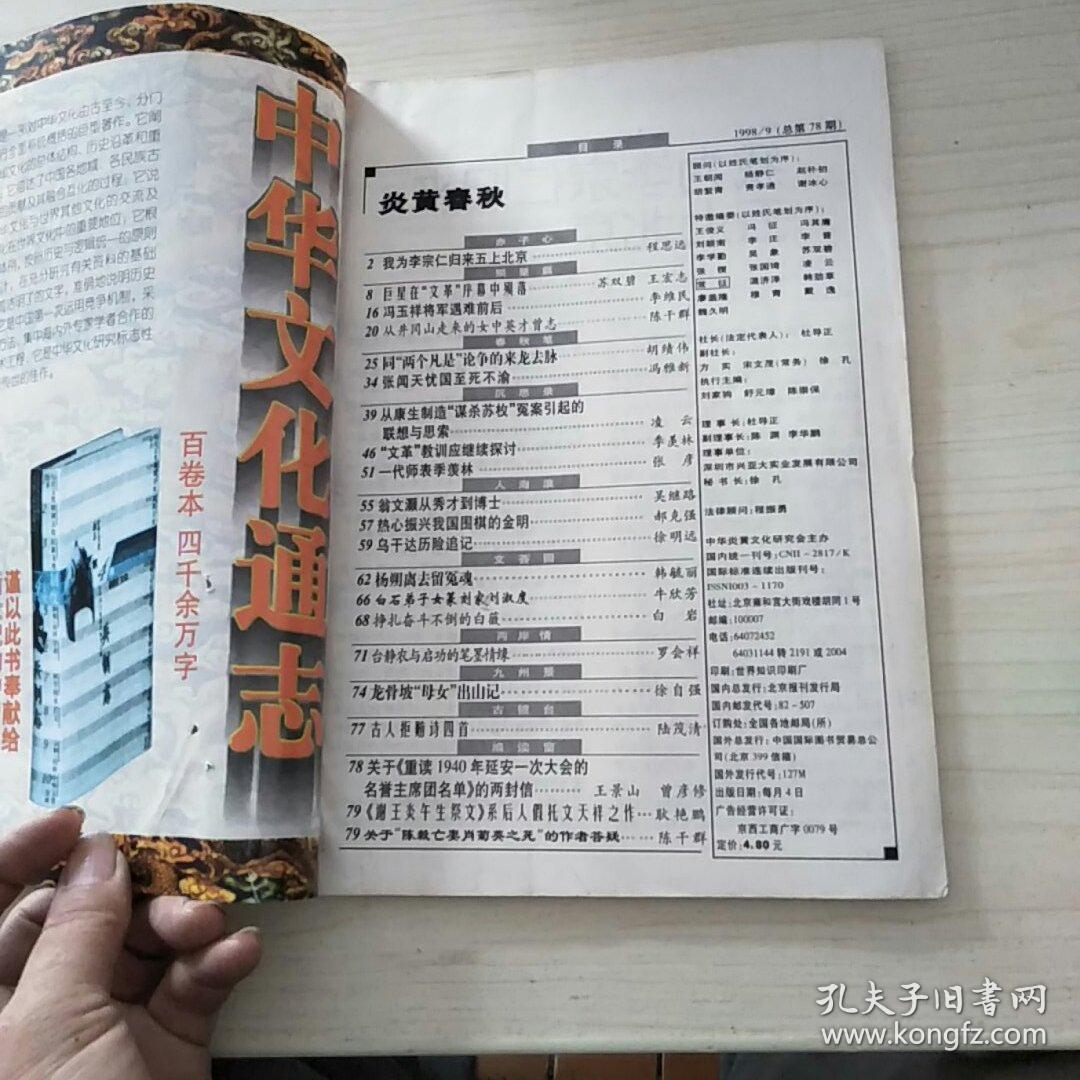 中华文化通志
百卷本 四千余万字
谨以此书奉献给
1998/9 (总第78期)
目录
炎黄春秋
赤子心
2 我为李宗仁归来五上北京 程思远
8 巨星在“文革”序幕中殒落 苏双碧 王宏志
16 冯玉祥将军遇难前后 李维民
20 从井冈山走来的女中英才曾志 陈千群
春秋笔
25 同“两个凡是”论争的来龙去脉 胡绩伟
34 张闻天忧国至死不渝 冯雅新
沉思录
39 从康生制造“谋杀苏枚”冤案引起的
联想与思索 凌云
46 “文革”教训应继续探讨 季羡林
51 一代师表季羡林 张彦
人海浪
55 翁文灏从秀才到博士 吴继路
57 热心振兴我国围棋的金明 郝克强
59 乌干达历险追记 徐明远
文荟园
62 杨朔离去留冤魂 韩毓丽
66 白石弟子女篆刻家刘淑度 牛欣芳
68 挣扎奋斗不倒的白薇 白岩
两岸情
71 台静农与启功的笔墨情缘 罗会祥
九州景
74 龙骨坡“母女”出山记 徐自强
古镜台
77 古人拒贿诗四首 陆茂清
阅读窗
78 关于《重读1940年延安一次大会的
名誉主席团名单》的两封信 王景山 曾彦修
79 《谢王炎午生祭文》系后人假托文天祥之作 耿艳鹏
79 关于“陈毅亡妻肖菊英之死”的作者答疑 陈千群
顾问(以姓氏笔划为序):
王朝闻 杨静仁 赵朴初
胡絜青 费孝通 谢冰心
特邀编委(以姓氏笔划为序):
王俊义 冯征 冯其庸
刘颖南 李庄 李普
李学勤 吴象 苏双碧
张楔 张国琦 凌云
温济泽 韩劲草
廖盖隆 穆青 戴逸
魏久明
社长(法定代表人): 杜导正
副社长:
方实 宋文茂(常务) 徐孔
执行主编:
刘家驹 舒元璋 陈崇保
理事长:杜导正
副理事长:陈渊 李华鹏
理事单位:
深圳市兴亚大实业发展有限公司
秘书长:徐孔
法律顾问:程振勇
中华炎黄文化研究会主办
国内统一刊号:CN11-2817/K
国际标准连续出版刊号:
ISSN1003-1170
社址:北京雍和宫大街戏楼胡同1号
邮编:100007
电话:64072452
64031144 转 2191 或 2004
印刷:世界知识印刷厂
国内总发行:北京报刊发行局
国内邮发代号:82-507
订购处:全国各地邮局(所)
国外总发行:中国国际图书贸易总公
司(北京399信箱)
国外发行代号:127M
出版日期:每月4日
广告经营许可证:
京西工商广字0079号
定价:4.80元
孔夫子旧书网
www.kongfz.com